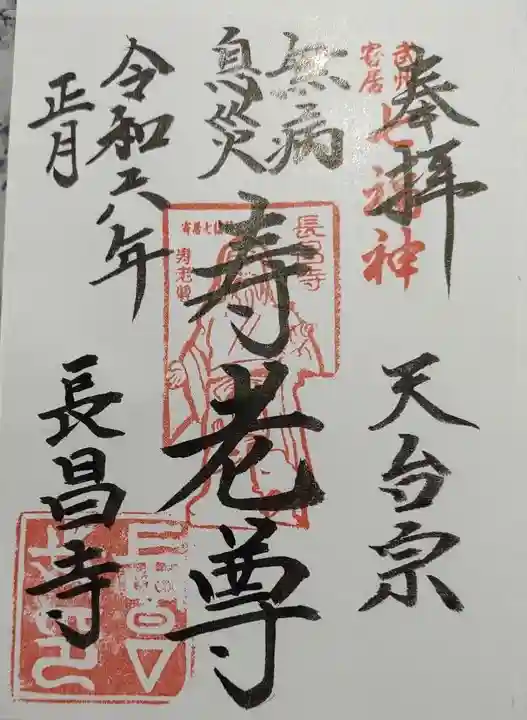 奉拝
武州
寄居
七福神
天台宗
無病
息災
寿老尊
長昌寺
寿老尊
令和六年
正月
長昌寺